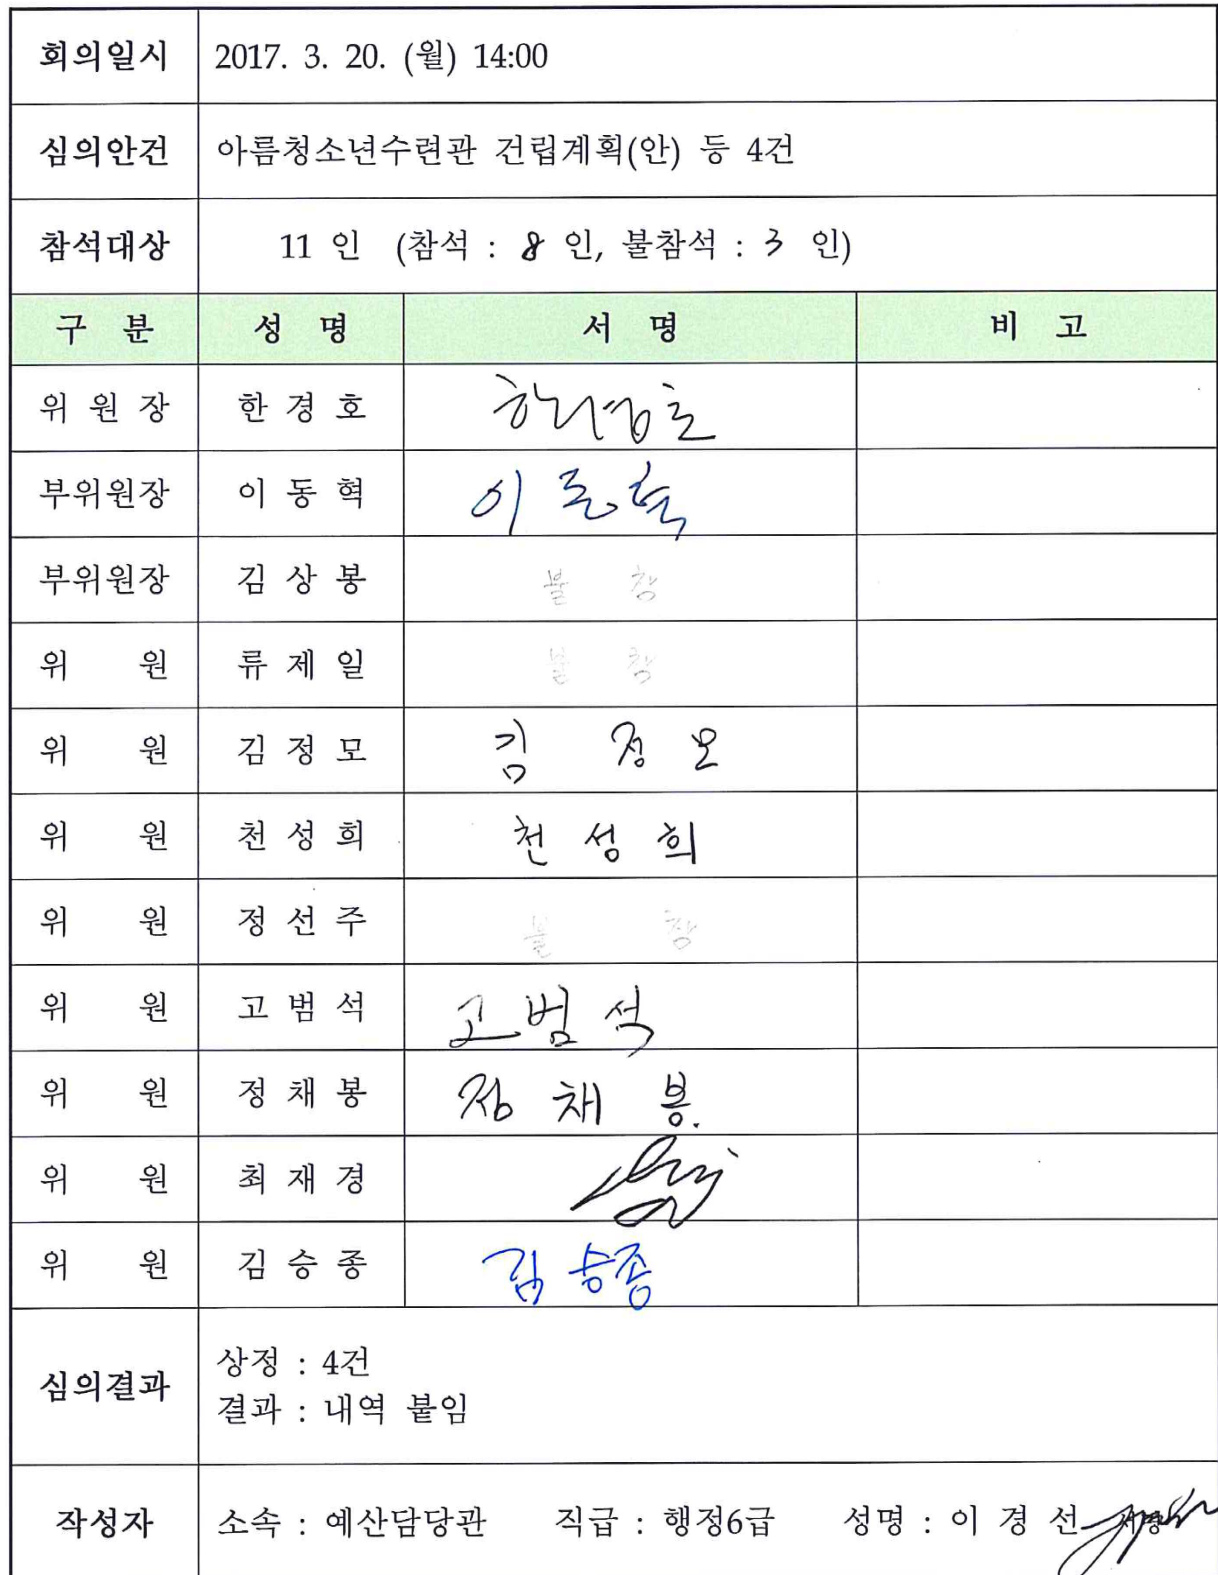 회의일시 2017. 3. 20. (월) 14:00
심의안건 아름청소년수련관 건립계획(안) 등 4건
참석대상 11 인 (참석 : 8 인, 불참석 : 3 인)
구 분 성 명 서 명 비 고
위 원 장 한 경 호 한경호
부위원장 이 동 혁 이동혁
부위원장 김 상 봉 불 참
위 원 류 제 일 불 참
위 원 김 정 모 김 정 모
위 원 천 성 희 천 성 희
위 원 정 선 주 불 참
위 원 고 범 석 고 범 석
위 원 정 채 봉 정 채 봉.
위 원 최 재 경
위 원 김 승 종 김 승종
심의결과 상정 : 4건
결과 : 내역 붙임
작성자 소속 : 예산담당관 직급 : 행정6급 성명 : 이 경 선